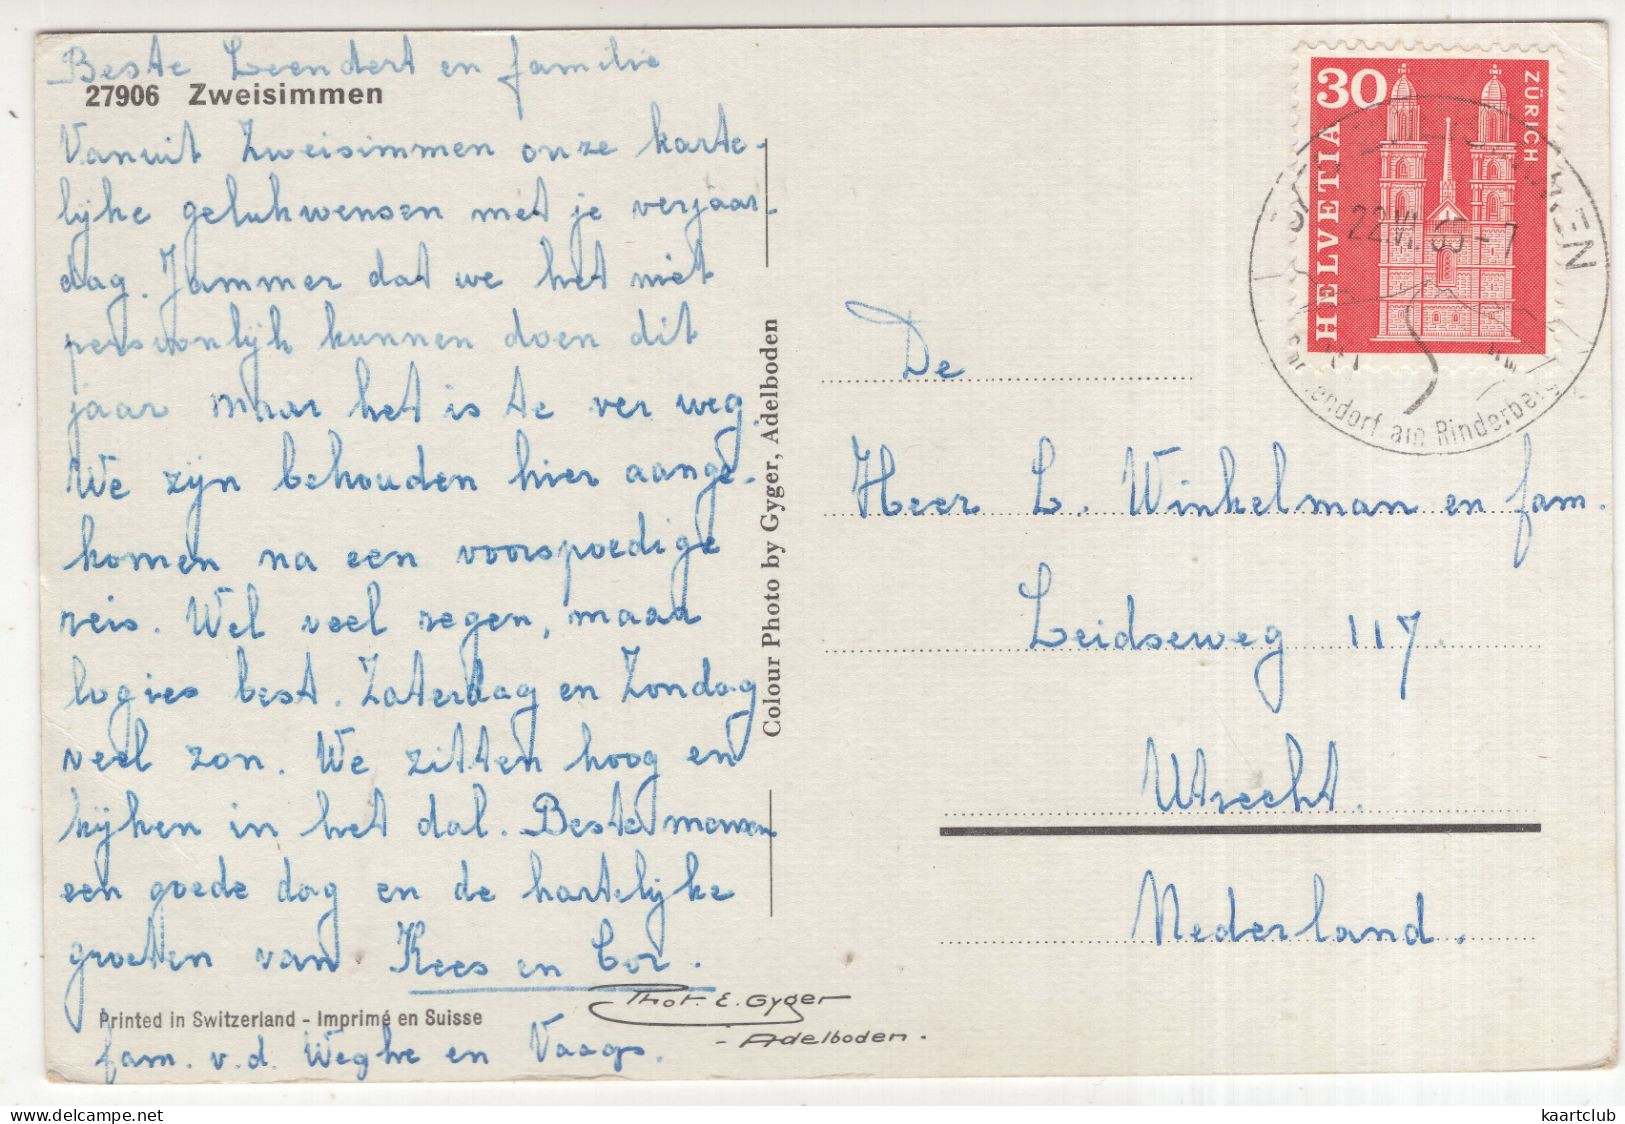 Beste Leendert en familie
27906 Zweisimmen
Vanuit Zweisimmen onze harte-
lijke gelukwensen met je verjaar-
dag. Jammer dat we het niet
persoonlijk kunnen doen dit
jaar maar het is te ver weg.
We zijn behouden hier aange-
komen na een voorspoedige
reis. Wel veel regen, maar
logies best. Zaterdag en Zondag
veel zon. We zitten hoog en
kijken in het dal. Beste mensen
een goede dag en de hartelijke
groeten van Kees en Cor.
Printed in Switzerland - Imprimé en Suisse
fam. v.d. Weghe en Vaags.
Phot. E. Gyger
- Adelboden.
Colour Photo by Gyger, Adelboden
30
HELVETIA
ZÜRICH
22.VI. 65 - 7
am Rinderberg
De
Heer L. Winkelman en fam.
Leidseweg 117.
Utrecht.
Nederland.
kaartclub